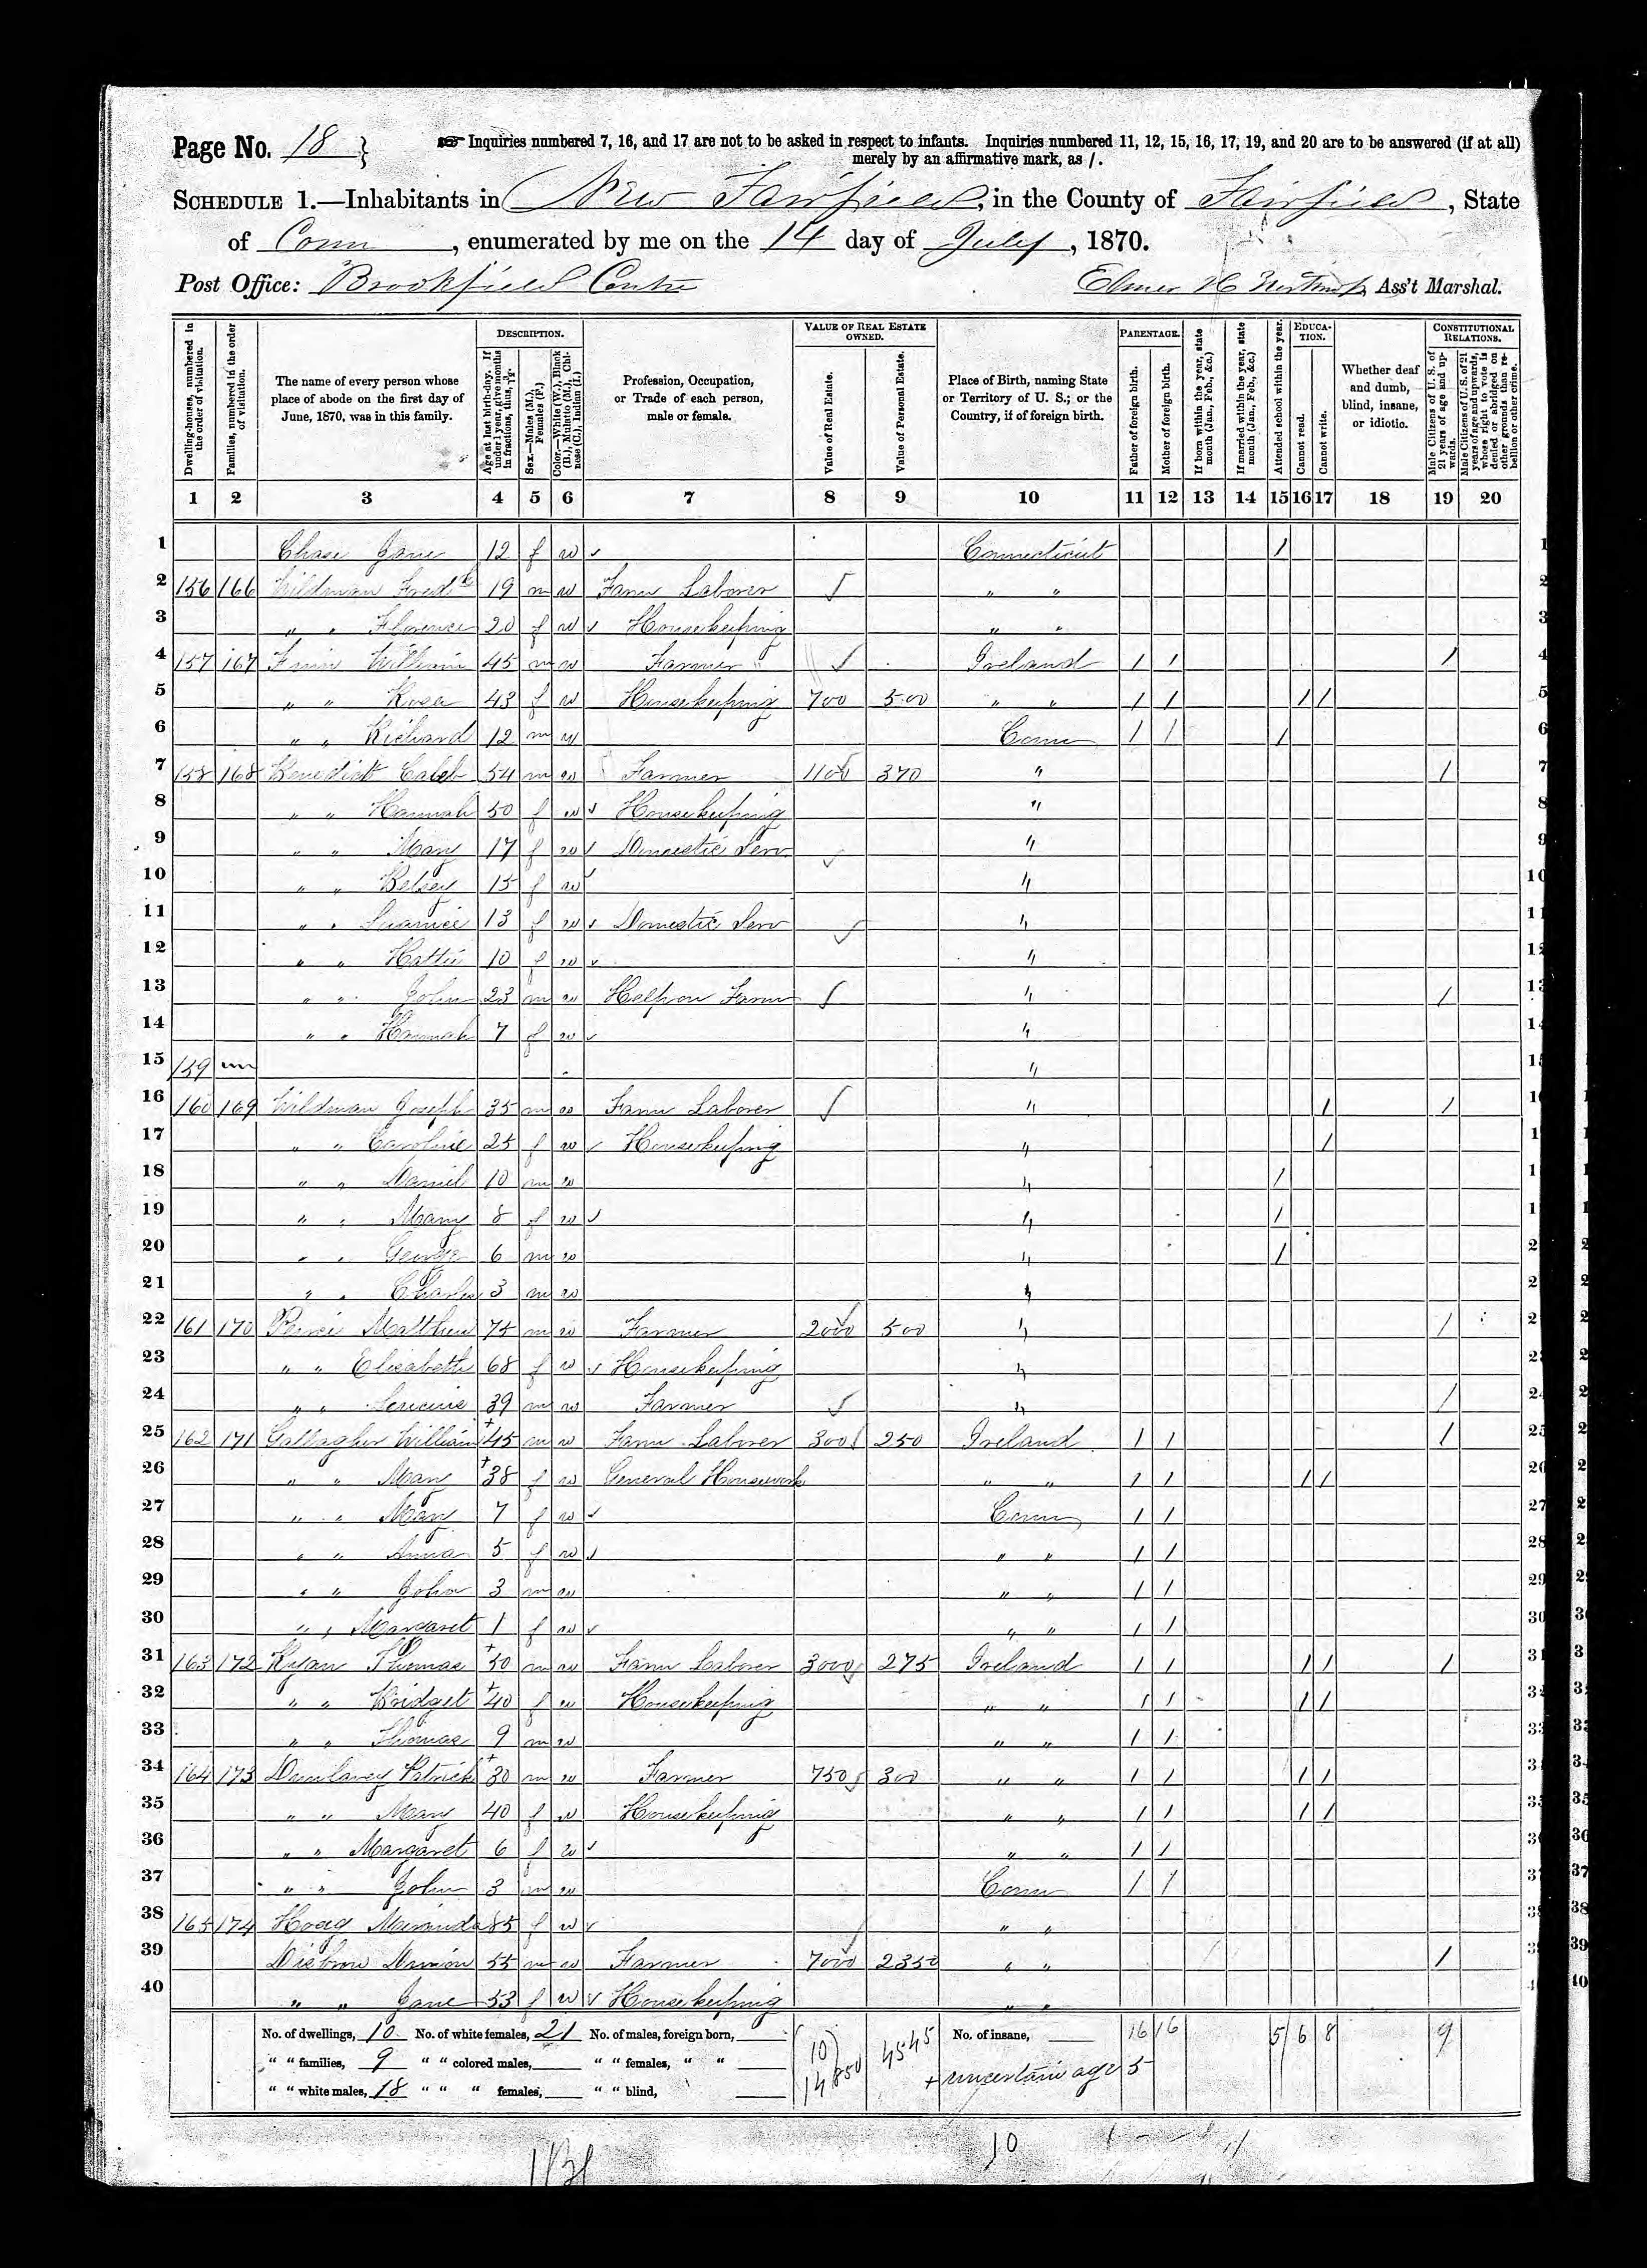 Page No. 18 }
☞ Inquiries numbered 7, 16, and 17 are not to be asked in respect to infants. Inquiries numbered 11, 12, 15, 16, 17, 19, and 20 are to be answered (if at all)
merely by an affirmative mark, as /.
SCHEDULE 1.—Inhabitants in New Fairfield, in the County of Fairfield, State
of Conn, enumerated by me on the 14 day of July, 1870.
Post Office: Brookfield Centre Elmer H Ass't Marshal.
Dwelling-houses, numbered in the order of visitation.
Families, numbered in the order of visitation.
The name of every person whose place of abode on the first day of June, 1870, was in this family.
DESCRIPTION.
Age at last birth-day. If under 1 year, give months in fractions, thus, 3/12.
Sex.—Males (M.), Females (F.)
Color.—White (W.), Black (B.), Mulatto (M.), Chinese (C.), Indian (I.)
Profession, Occupation, or Trade of each person, male or female.
VALUE OF REAL ESTATE OWNED.
Value of Real Estate.
Value of Personal Estate.
Place of Birth, naming State or Territory of U. S.; or the Country, if of foreign birth.
PARENTAGE.
Father of foreign birth.
Mother of foreign birth.
If born within the year, state month (Jan., Feb., &c.)
If married within the year, state month (Jan., Feb., &c.)
Attended school within the year.
EDUCATION.
Cannot read.
Cannot write.
Whether deaf and dumb, blind, insane, or idiotic.
CONSTITUTIONAL RELATIONS.
Male Citizens of U. S. of 21 years of age and upwards.
Male Citizens of U. S. of 21 years of age and upwards, whose right to vote is denied or abridged on other grounds than rebellion or other crime.
1 2 3 4 5 6 7 8 9 10 11 12 13 14 15 16 17 18 19 20
1 Chase Jane 12 f w ✓ Connecticut /
2 156 166 Wildman Fredk 19 m w Farm Laborer ✓ " "
3 " " Florence 20 f w ✓ Housekeeping " "
4 157 167 William 45 m w Farmer ✓ Ireland / / /
5 " " Rosa 43 f w Housekeeping 700 500 " " / / / /
6 " " Richard 12 m w Conn / / /
7 158 168 Benedict Caleb 54 m w Farmer 1100 370 " /
8 " " Hannah 50 f w ✓ Housekeeping "
9 " " Mary 17 f w ✓ Domestic Serv ✓ "
10 " " Betsey 15 f w ✓ "
11 " " 13 f w ✓ Domestic Serv ✓ "
12 " " Hattie 10 f w ✓ "
13 " " John 23 m w Help on Farm ✓ " /
14 " " Hannah 7 f w ✓ "
15 159 "
16 160 169 Wildman Joseph 35 m w Farm Laborer ✓ " / /
17 " " Caroline 25 f w ✓ Housekeeping " /
18 " " Daniel 10 m w " /
19 " " Mary 8 f w ✓ " /
20 " " George 6 m w " /
21 " " Charles 3 m w "
22 161 170 Matthew 75 m w Farmer 2000 500 " /
23 " " Elisabeth 68 f w ✓ Housekeeping "
24 " " 39 m w Farmer ✓ " /
25 162 171 Gallagher William +45 m w Farm Laborer 300 250 Ireland / / /
26 " " Mary +38 f w General Housework " " / / / /
27 " " Mary 7 f w ✓ Conn / /
28 " " Anna 5 f w ✓ " " / /
29 " " John 3 m w " " / /
30 " " Margaret 1 f w ✓ " " / /
31 163 172 Ryan Thomas +50 m w Farm Laborer 3000 275 Ireland / / / / /
32 " " Bridget +40 f w Housekeeping " " / / / /
33 " " Thomas 9 m w " " / /
34 164 173 Dunlavey Patrick +30 m w Farmer 750 300 " " / / / /
35 " " Mary 40 f w Housekeeping " " / / / /
36 " " Margaret 6 f w ✓ " " / /
37 " " John 3 m w Conn / /
38 165 174 Hoag 85 f w ✓ " "
39 Disbrow 55 m w Farmer 7000 2350 " " /
40 " " Jane 53 f w ✓ Housekeeping " "
No. of dwellings, 10 No. of white females, 21 No. of males, foreign born, No. of insane, 16 16 5 6 8 9
" " families, 9 " " colored males, " " females, " " 10 4545
" " white males, 18 " " " females, " " blind, 14850 + uncertain age 5
10